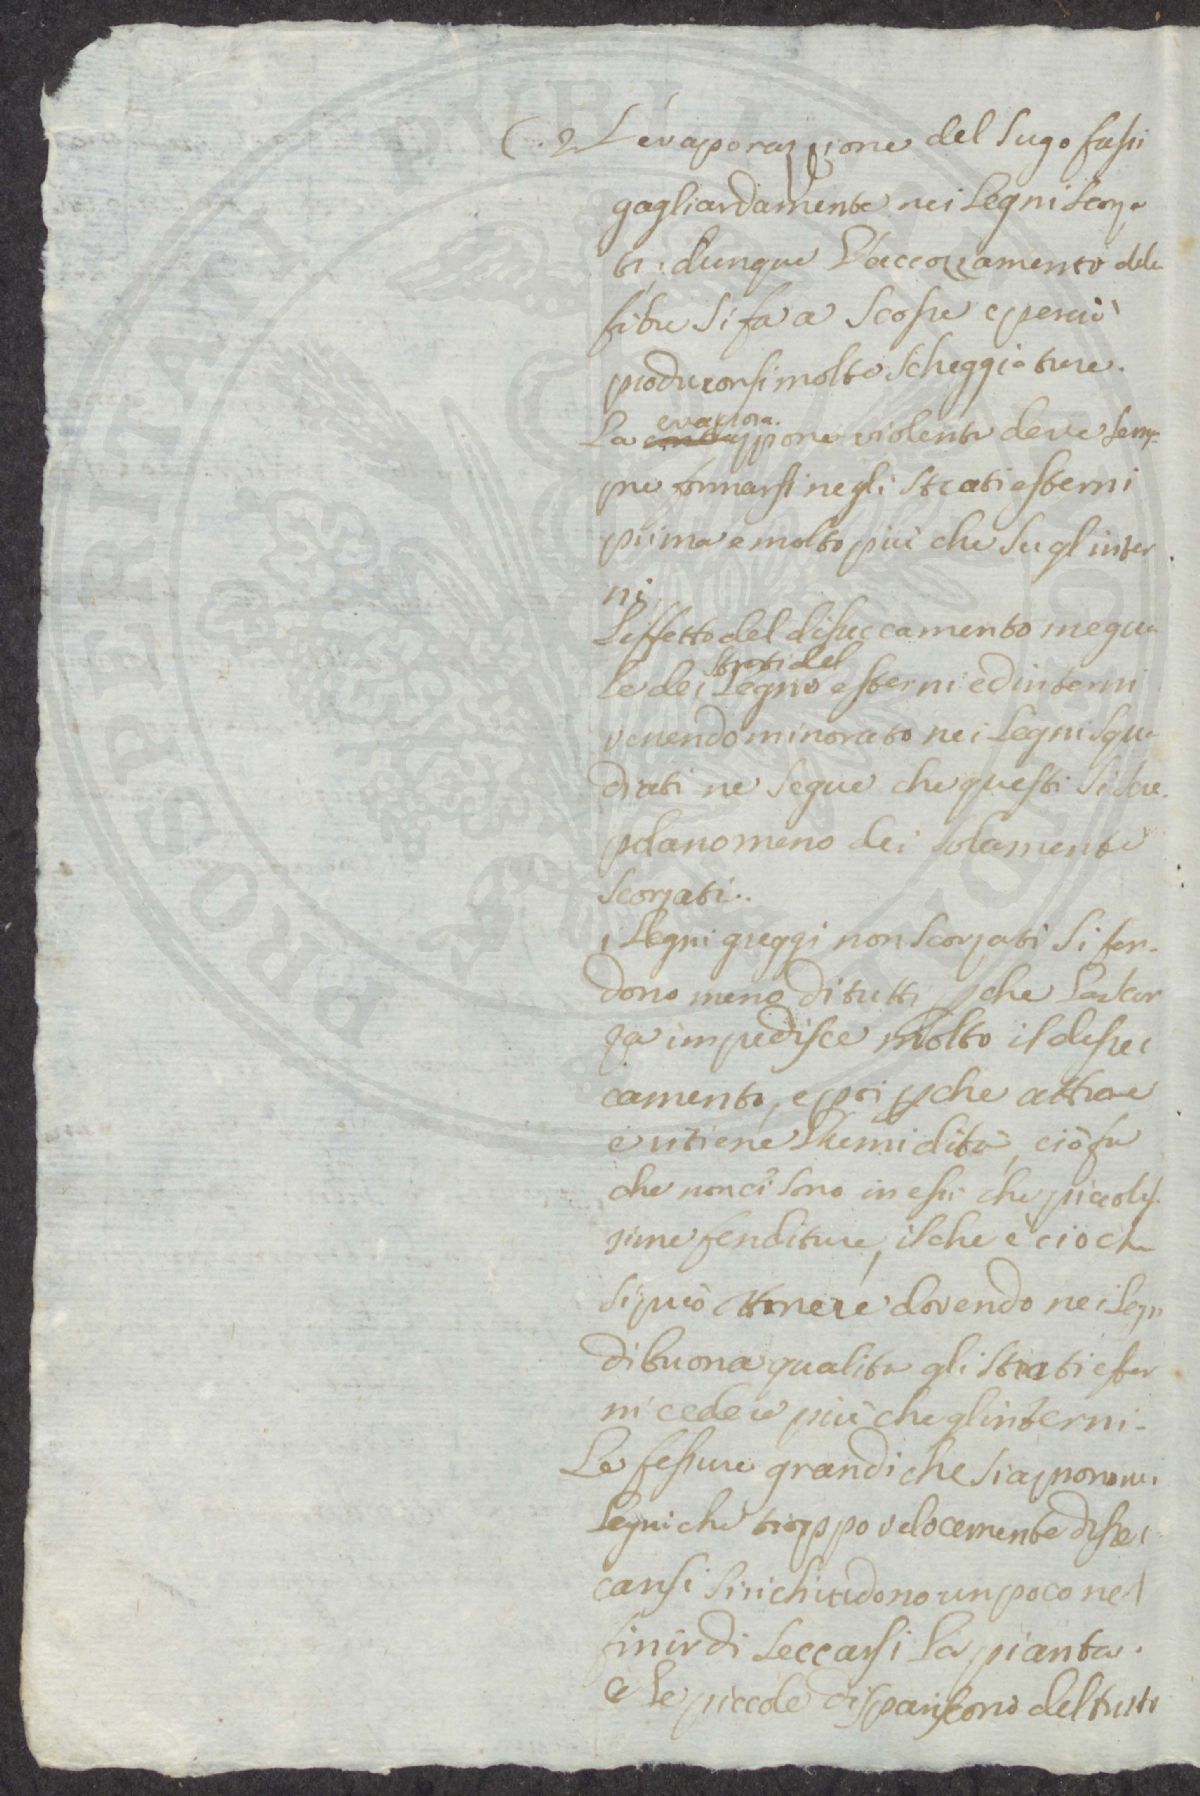 (. 2. L'evaporazione del Sugo fassi
gagliardamente nei Legni Scorza
ti, dunque L'accozzamento dele
fibre si fa a Scosse e perciò
produconsi molte Scheggiature.
La evapora zione violenta deve Sem
pre formarsi negli Strati esterni
prima e molto più che Sugl inter
ni.
L'effetto del disseccamento inegua
le dei Strati del Legno esterni ed interni
venendo minorato nei Legni Squa
drati ne Segue che questi Si scre
polano meno dei Solamente
Scorzati.
i Legni greggi non Scorzati Si fen-
dono meno di tutti pche La Scor
za impedisce molto il dissec
camento, e poi pche attrae
e ritiene L'humidità, ciò fa
che non ci Sono in essi che piccolis
sime fenditure, il che è ciò che
Si può ottenere dovendo nei Legn
di buona qualità gli Strati ester
ni cedere più che gl'interni.
Le fessure grandi che Si aprono nei
Legni che troppo velocemente dissec
cansi Si richiudono un poco nel
finir di Seccarsi La pianta.
e Le piccole Dispariscono del tutto
PROSPERITATI PUBLICAE